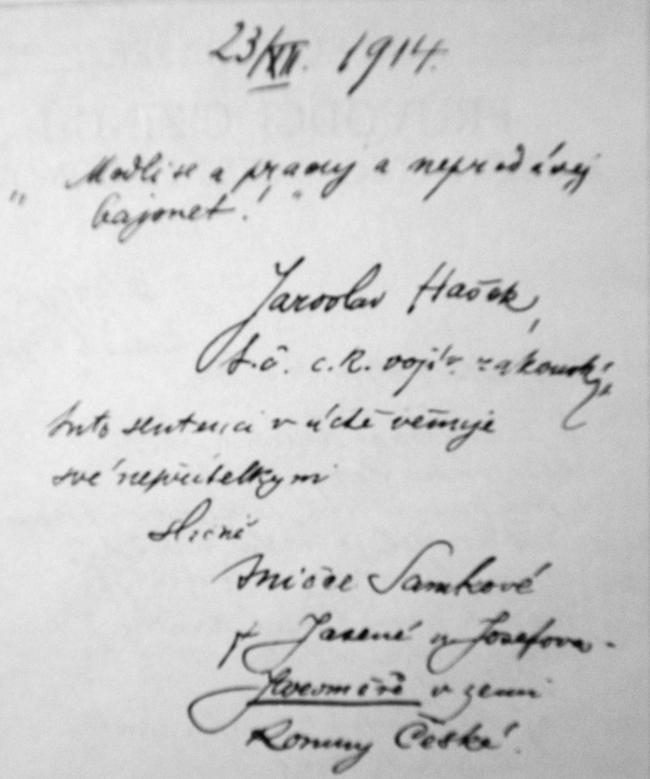 23/XII. 1914.
„Modli se a pracuj a neprodávej
bajonet!"
Jaroslav Hašek,
t.č. c.k. voják rakouský,
tuto sentenci v úctě věnuje
své nepřítelkyni
slečně
Aničce Samkové
z Jasené u Josefova-
Jaroměře v zemi
Koruny České.